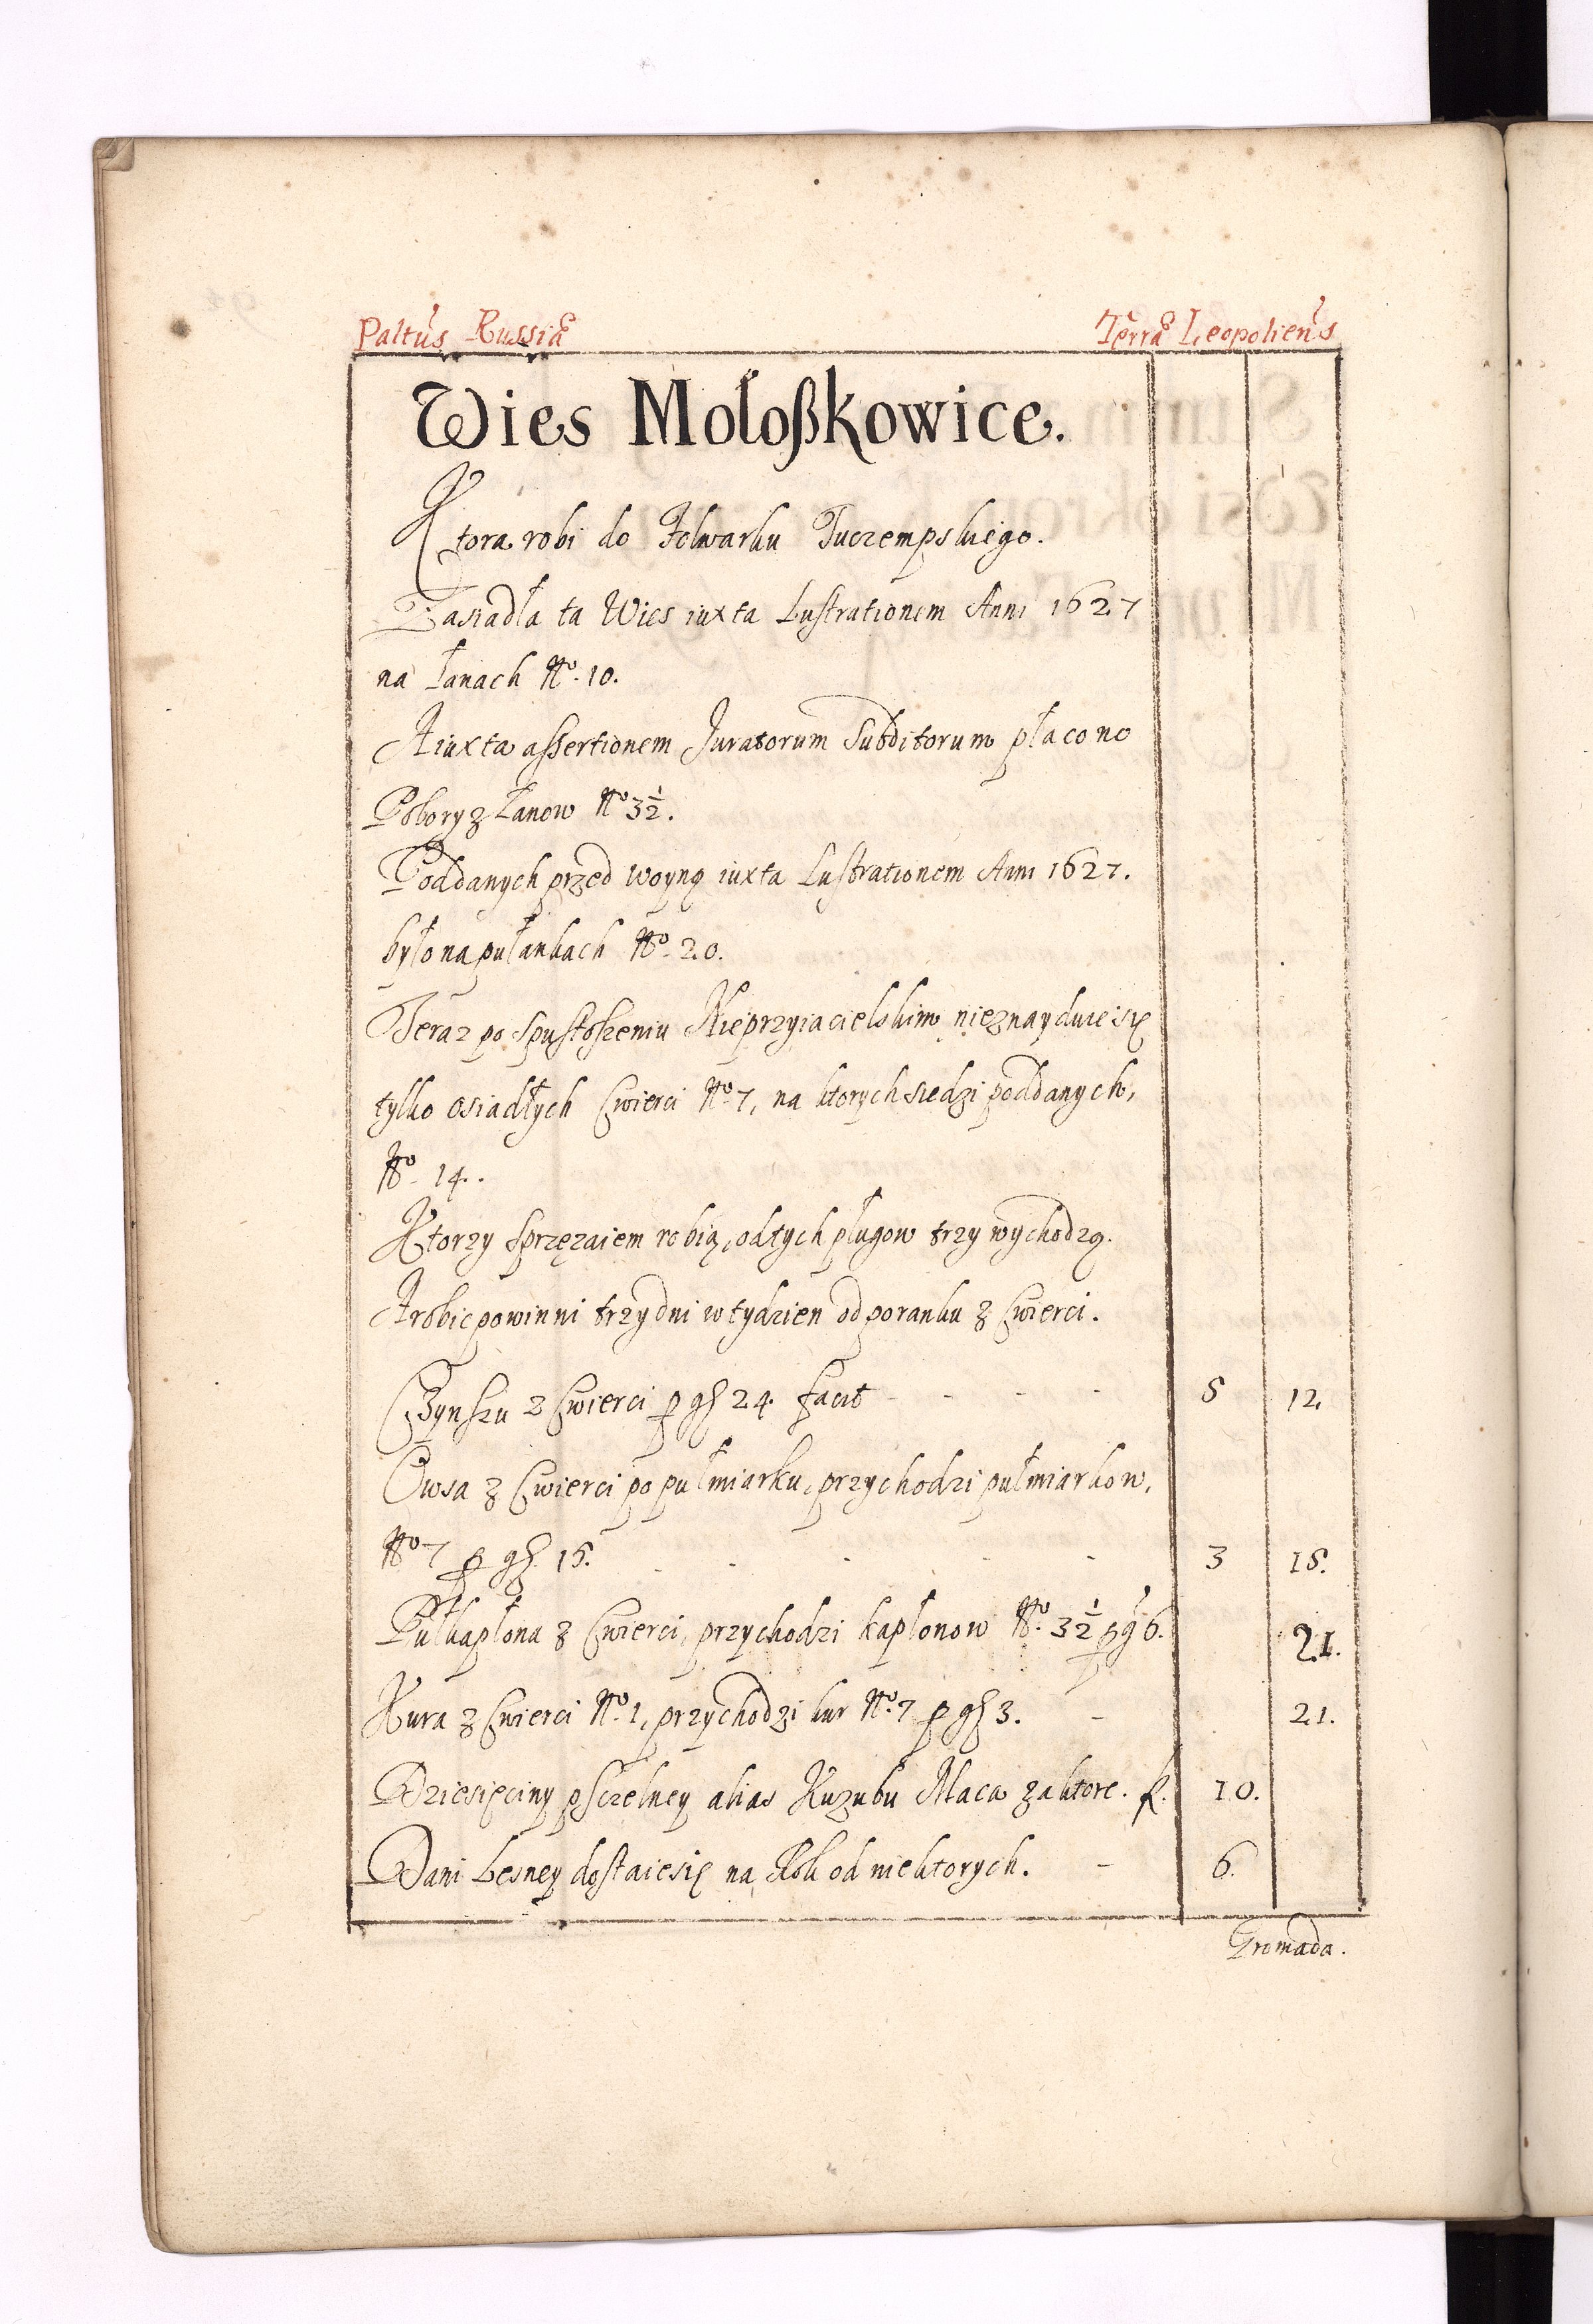 Paltus Russiæ Terræ Leopoliens
Wies Mołoßkowice.
Ktora robi do Folwarku Tuczempskiego.
Zasiadła ta Wies iuxta Lustrationem Anni 1627
na Łanach No. 10.
A iuxta assertionem Juratorum Subditorum płacono
Pobory z Łanow No 3½.
Poddanych przed woyną iuxta Lustrationem Anni 1627.
było na pułankach No. 20.
Teraz po spustoszeniu Nieprzyiacielskim nieznayduie się
tylko osiadłych Cwierci No. 7, na ktorych siedzi poddanych,
No. 14.
Ktorzy sprzężaiem robią, od tych pługow trzy wychodzą.
A robic powinni trzy dni w tydzien od poranku z Cwierci.
Czynszu z Cwierci p gß 24. facit - - - - 5 12.
Owsa z Cwierci po pułmiarku, przychodzi pułmiarkow,
No 7 p gß. 15. - - - - 3 15.
Pułkapłona z Cwierci, przychodzi kapłonow No. 3½ p g 6. 21.
Kura z Cwierci No. 1, przychodzi kur No. 7 p gß 3. - 21.
Dziesięciny pszczelney alias Kuzubu Maca za ktore. f. 10.
Dani Lesney dostaie się na Rok od niektorych. - 6.
Gromada.